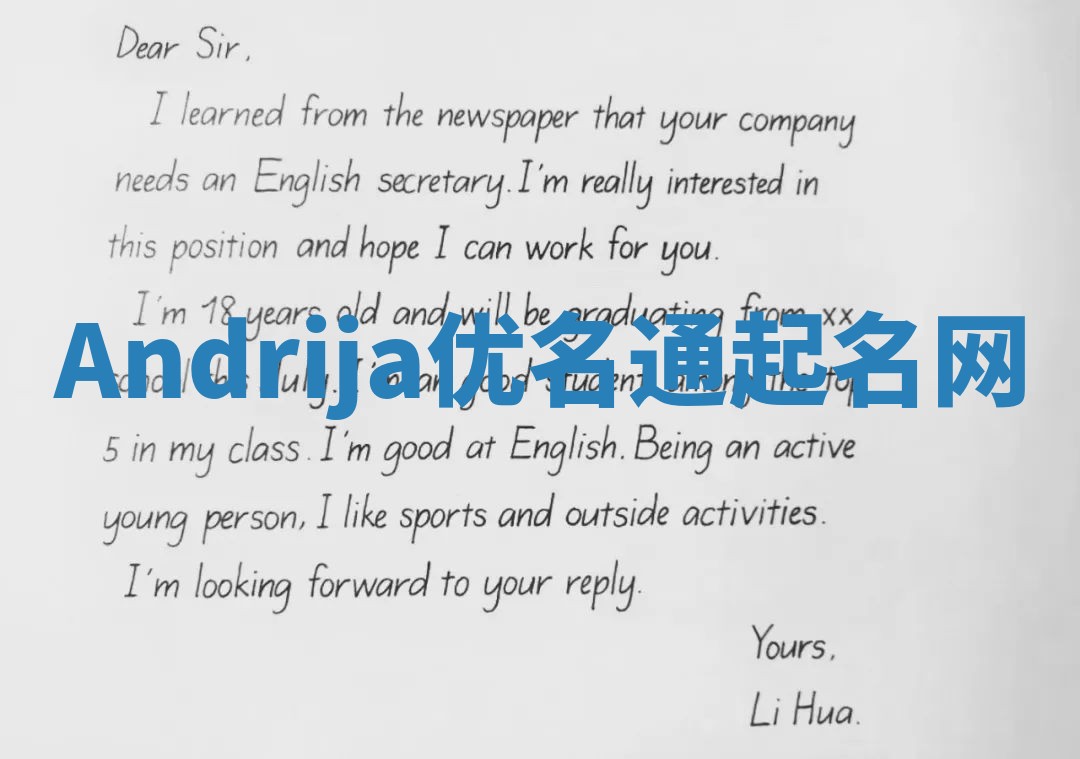 Dear Sir,
I learned from the newspaper that your company
needs an English secretary. I'm really interested in
this position and hope I can work for you.
I'm 18 years old and will be graduating from xx
Andrija优名通起名网
school this July. I'm an good student among the top
5 in my class. I'm good at English. Being an active
young person, I like sports and outside activities.
I'm looking forward to your reply.
Yours,
Li Hua.